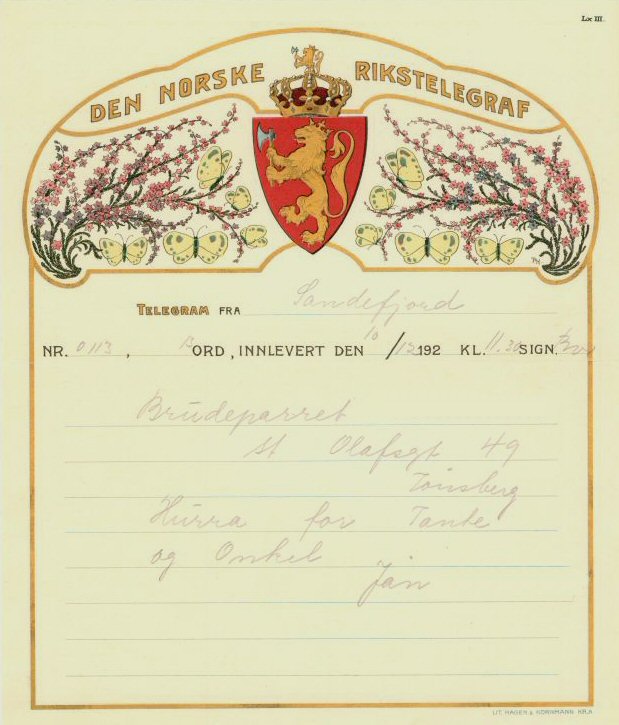 Lx III.
DEN NORSKE RIKSTELEGRAF
TELEGRAM FRA Sandefjord
NR. 0113, 13 ORD, INNLEVERT DEN 10/12 192 KL. 11.30 SIGN.
Brudeparret
St Olafsgt 49
Tönsberg
Hurra for Tante
og Onkel
Jan
LIT. HAGEN & KORNMANN KR.A